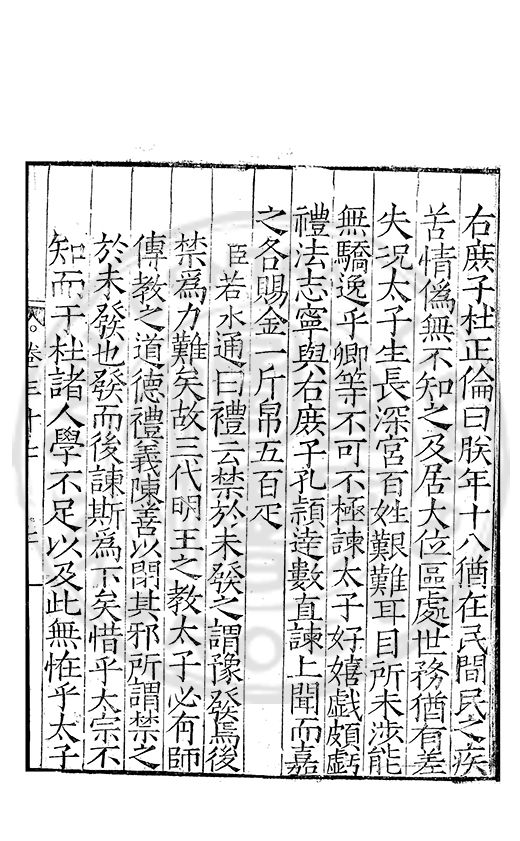 右庶子杜正倫曰朕年十八猶在民間民之疾
苦情偽無不知之及居大位區處世務猶有差
失况太子生長深宮百姓艱難耳目所未渉能
無驕逸乎卿等不可不極諫太子好嬉戯頗虧
禮法志寧與右庶子孔頴達數直諫上聞而嘉
之各賜金一斤帛五百疋
臣若水通曰禮云禁於未發之謂豫發焉後
禁爲力難矣故三代明王之教太子必有師
傅教之道德禮義陳善以閉其邪所謂禁之
於未發也發而後諫斯爲下矣惜乎太宗不
知而于杜諸人學不足以及此無恠乎太子
卷三十